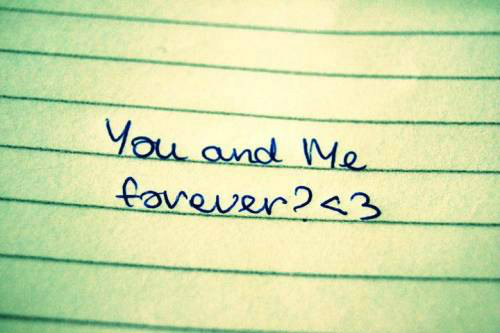 You and Me
forever? <3